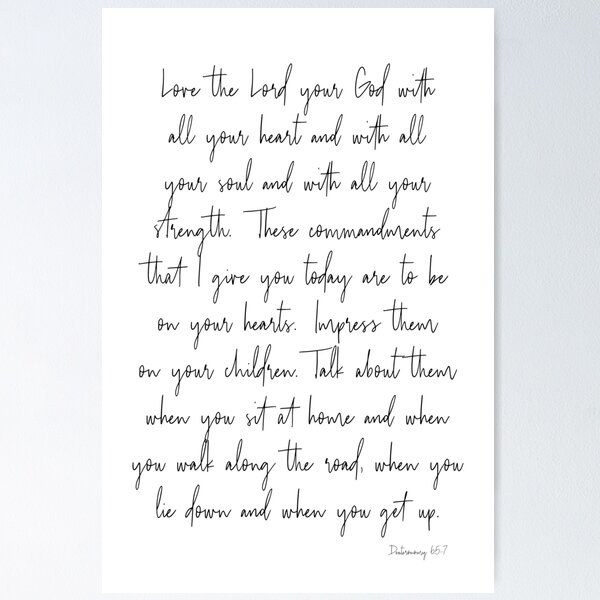 Love the Lord your God with
all your heart and with all
your soul and with all your
strength. These commandments
that I give you today are to be
on your hearts. Impress them
on your children. Talk about them
when you sit at home and when
you walk along the road, when you
lie down and when you get up.
Deuteronomy 6:5-7